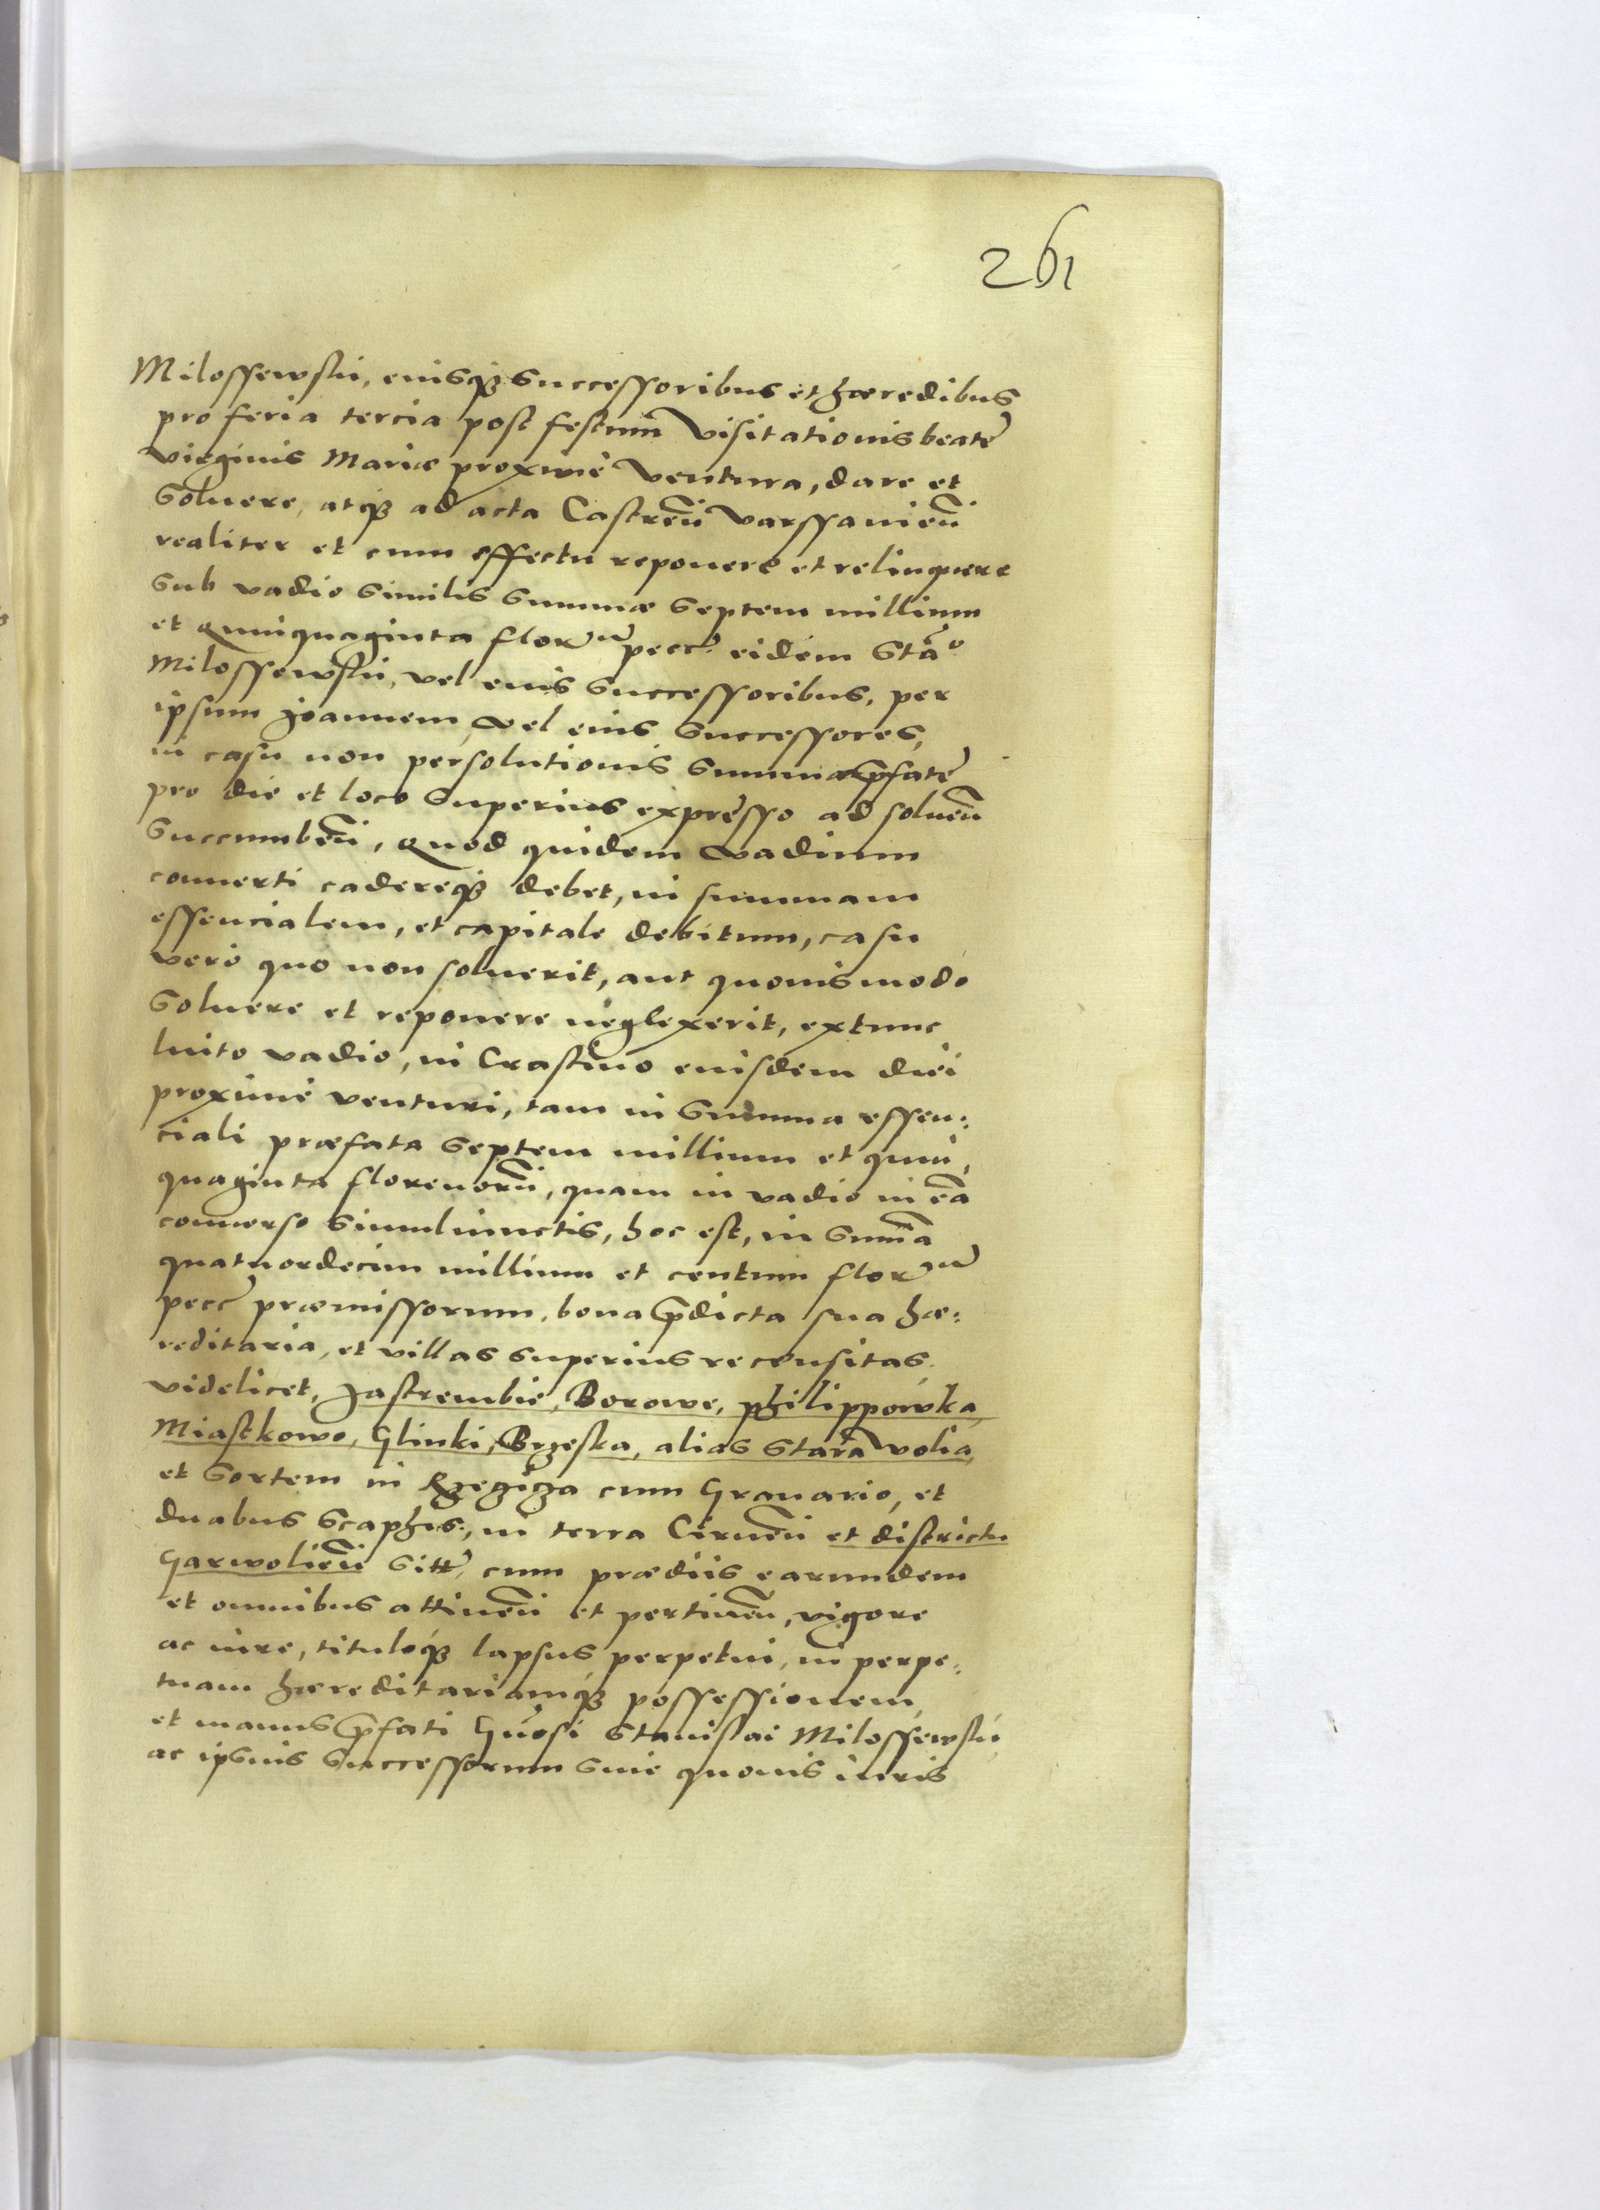 261
Milossewskii, eiusq3 successoribus et hæredibus
pro feria tercia post festum Visitationis beatę
virginis Mariæ proximè ventura, dare et
soluere, atq3 ad acta Castreñ Varssavieñ
realiter et cum effectu reponere et relinquere
sub vadio similis summæ septem millium
et quinquaginta florū pecc. eidem Stão
Milossewskii, vel eius successoribus, per
ipsum Joannem, vel eius successores,
in casu non persolutionis summæ pfatę
pro die et loco superius expresso ad solueñ
succumbeñ, quod quidem vadium
conuerti cadereq3 debet, in summam
essencialem, et capitale debitum, casu
verò quo non soluerit, aut quouis modo
soluere et reponere neglexerit, extunc
luito vadio, in Crastino eiusdem diei
proximè venturi, tam in summa essen:
ciali præfata septem millium et quin,
quaginta florenorū, quam in vadio in eã
conuerso simul iunctis, hoc est, in sum̃a
quatuordecim millium et centum florū
pecc præmissorum, bona pdicta sua hæ:
reditaria, et villas superius recensitas
videlicet, Jastrembie, Borowe, Philippowka,
Miastkowo, Glinki, Brzeska, alias Stara volia,
et sortem in cum Granario, et
duabus scaphis, in terra Cirneñ et districtu
Garwolieñ sitt, cum prædiis earundem
et omnibus attineñ et pertineñ, vigore
ac iure, tituloq3 lapsus perpetui, in perpe:
tuam hæreditariamq3 possessionem,
et manus pfati Gñosi Stanislai Milossewskii,
ac ipsius successorum siue quouis iuris